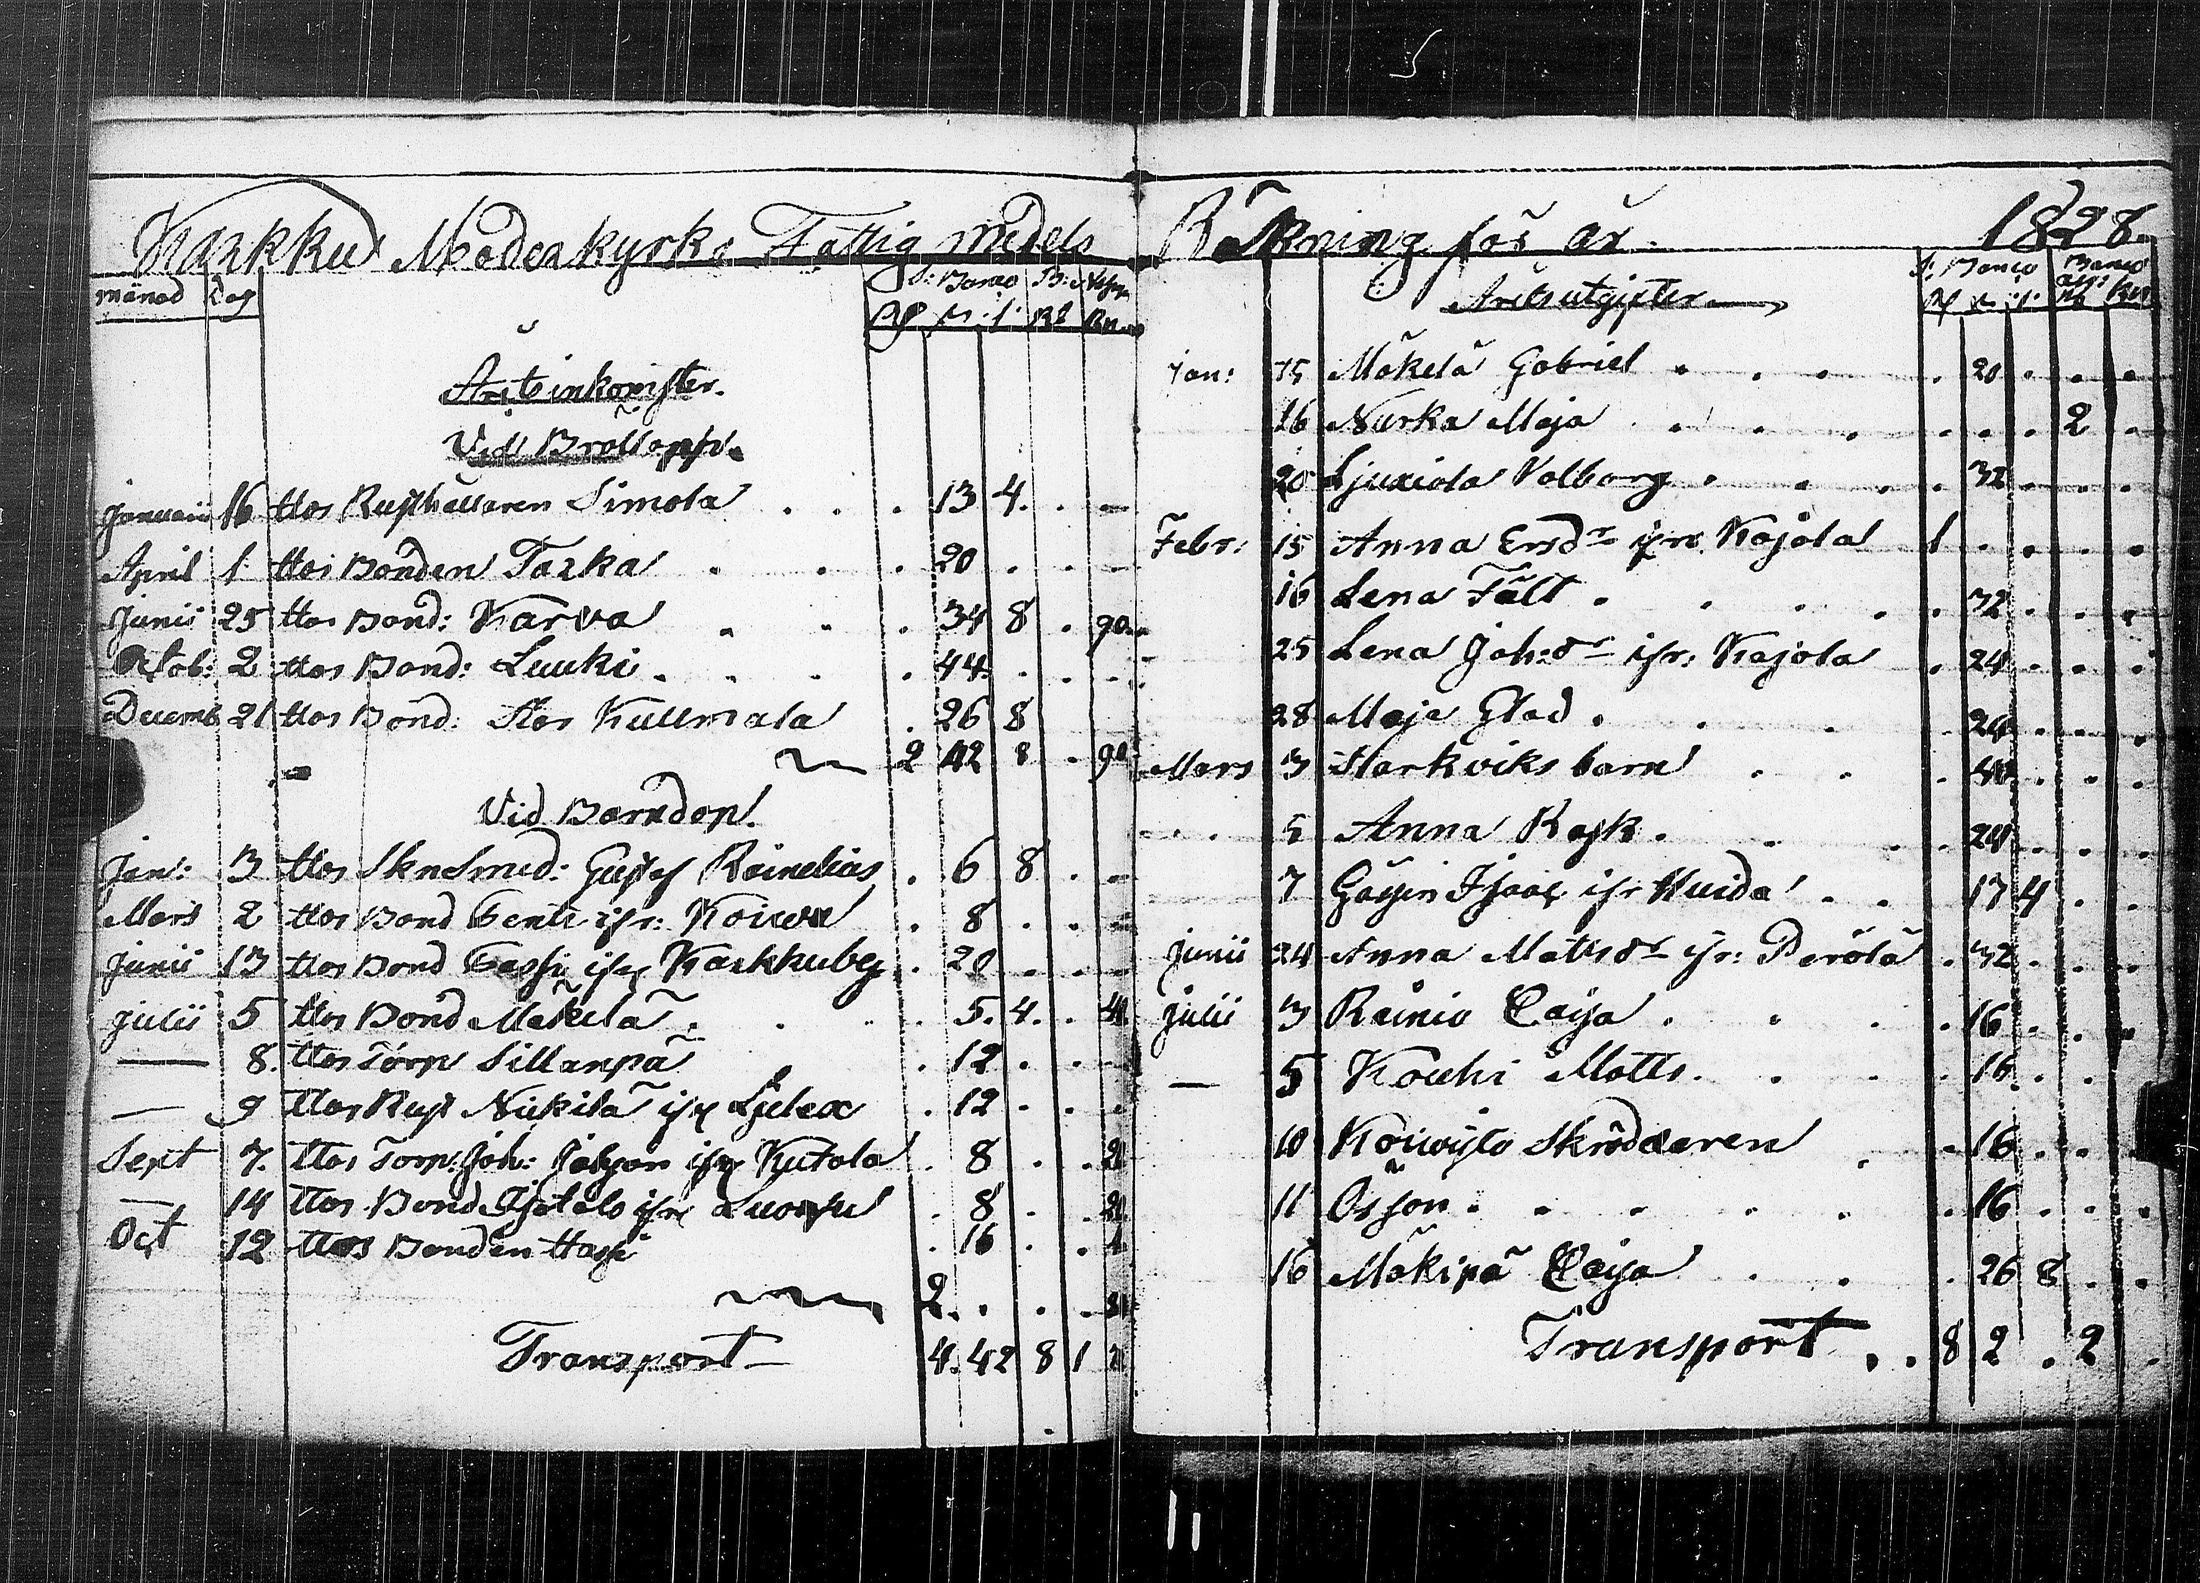 Karkku Moderkyrko Fattig medels
månad Dag S: Banco B:
Rd s. f. Rd Kn
Årets inkomster.
Vid Bröllopp.
Januarii 16 Hos Rusthållaren Simola . . . 13 4 . .
April 1 Hos Bonden Tarka . . . 20 . . .
Junii 25 Hos Bond: Karva . . . 34 8 . 90
Octob: 2 Hos Bond: Luuki . . . . 44 . . .
Decemb 21 Hos Bond: Kullmala . 26 8
2 42 8 . 90
Vid Barndop.
Jan: 3 Hos Gustaf . 6 8 . .
Mars 2 Hos Bond ifr: . 8 . . .
Junii 13 Hos Bond ifr Karkkuby . 20 . . .
Julii 5 Hos Bond Mäkelä . . . 5. 4. . 4
— 8. Hos Torp Sillanpä . 12 . . .
— 9 Hos Rust Nikkilä ifr . 12 . . .
Sept 7. Hos Torp: Joh: ifr Kutala . 8 . . 2
— 14 Hos Bond ifr . 8 . . 2
Oct 12 Hos Bonden Hassi . 16 . .
2 . . .
Transport 4. 42 8 1
Räkning för år 1828.
Årets utgifter S: Banco Banco
Jan: 15 Mäkelä Gabriel . . . . 20 . . .
16 Nurka Maja . . . . . . . 2 .
20 Valborg . . . . 32 . . .
Febr: 15 Anna Ersdr ifr. Kojola 1 . . . .
16 Lena Fält . . . . . 32 . . .
25 Lena Joh:dr ifr: Kojola . 24 . . .
28 Maja Glad . . . . 24 . . .
Mars 3 Starkviks barn . . . 40 . . .
5 Anna Rask . . . 24 . . .
7 ifr Huida . . 17 4 . .
Junii 24 Anna Mattsdr ifr: Perölä . 32 . . .
Julii 3 Rainio Caisa . . . . 16 . . .
— 5 Kouhi Matts . . . . 16 . . .
10 Koivisto Skräddaren . . 16 . . .
11 Osson . . . . . . 16 . . .
16 Mäkipä Caisa . . . 26 8 . .
Transport . . 8 2 . 2 .